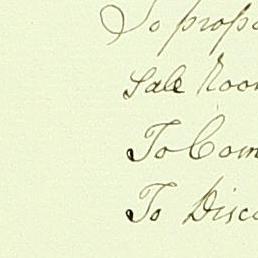 To propo
Sale Roo
To Com
To Disc